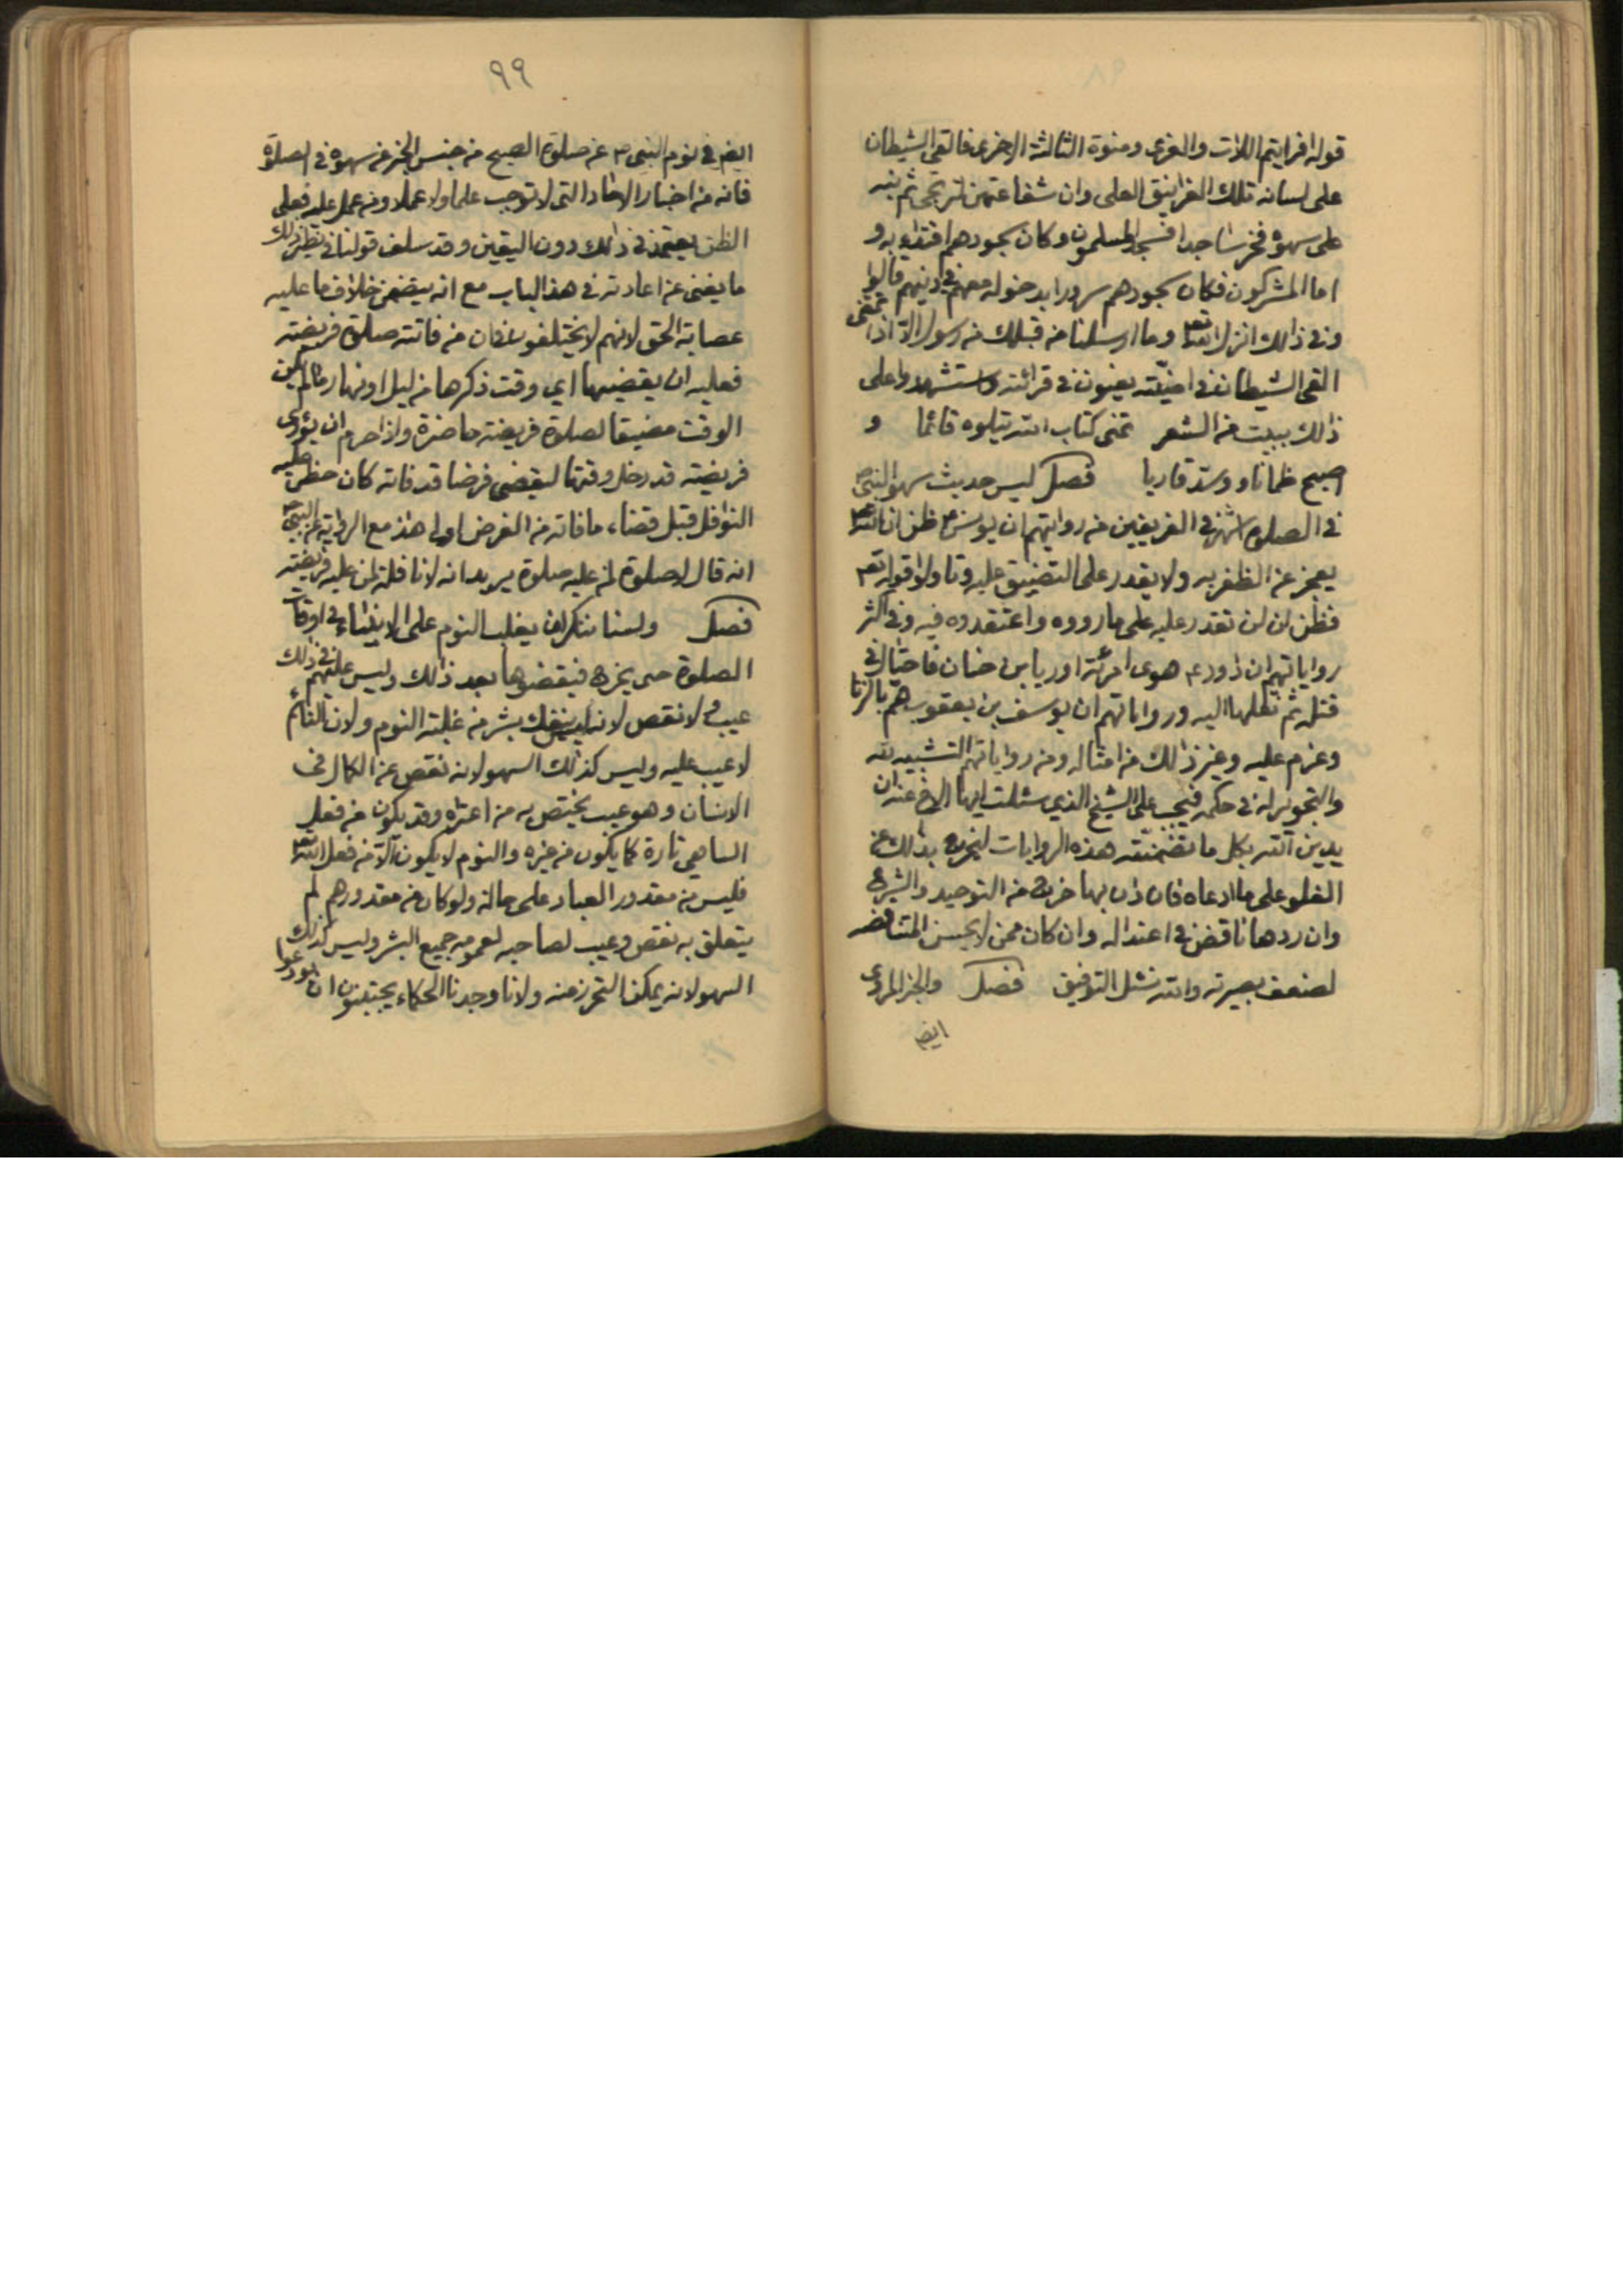 قوله افرايتم اللات والعزى ومنوة الثالثة الاخرى فالقى الشيطان
على لسانه تلك الغرانيق العلى وان شفاعتهن لترتجى ثم نبه
على سهوه فخر ساجدا فسجد المسلمون وكان سجودهم اقتداء به و
اما المشركون فكان سجودهم سرورا بدخوله معهم في دينهم قالوا
وفي ذالك انزل الله تعم وما ارسلنا من قبلك من رسول الا اذا تمنى
القى الشيطان في امنيته يعنون في قرائته واستشهدوا على
ذالك ببيت من الشعر تمنى كتاب الله يتلوه قائما و
اصبح ظمانا و وسد قاريا فصل ليس حديث سهو النبي ص
في الصلوة اشهر في الفريقين من روايتهم ان يونس ع ظن ان الله تعم
يعجز عن الظفر به ولا يقدر على التضييق عليه وتاولوا قوله تعم
فظن ان لن نقدر عليه على ما رووه واعتقدوه فيه وفي اكثر
رواياتهم ان داود ع هوى امرئة اوريا بن حنان فاحتال في
قتله ثم نقلها اليه ورواياتهم ان يوسف بن يعقوب هم بالزنا
وعزم عليه وغير ذالك من امثاله ومن رواياتهم التشبيه لله
والتجوير له في حكمه فيجب على الشيخ الذي سئلت ايها الاخ عنه ان
يدين الله بكل ما تضمنته هذه الروايات ليخرج بذالك عن
الغلو على ما ادعاه فان دان بها خرج من التوحيد والشرع
وان ردها ناقض في اعتداله وان كان ممن لا يحسن المناقضه
لضعف بصيرته والله نسئل التوفيق فصل والخبر المروى
ايضم
٩٩
ايضم في نوم النبي ص عن صلوة الصبح من جنس الخبر عن سهوه في الصلوة
فانه من اخبار الاحاد التي لا توجب علما ولا عملا ومن عمل عليه فعلى
الظن يعتمد في ذالك دون اليقين وقد سلف قولنا في نظير ذلك
ما يغنى عن اعادته في هذ الباب مع انه يتضمن خلاف ما عليه
عصابة الحق لانهم لا يختلفون في ان من فاتته صلوة فريضته
فعليه ان يقضيها اي وقت ذكرها من ليل او نهار ما لم يكن
الوقت مضيقا لصلوة فريضته حاضرة واذا حرم ان يؤدى
فريضته قد دخل وقتها ليقضى فرضا قد فاته كان حظر عليه
النوافل قبل قضاء ما فاته من الفرض اولى هذ مع الرواية عن النبي ص
انه قال لا صلوة لمن عليه صلوة يريد انه لا نافلة لمن عليه فريضته
فصل ولسنا ننكر ان يغلب النوم على الانبياء في اوقات
الصلوة حتى يخرج فيقضوها بعد ذالك وليس عليهم في ذلك
عيب ولا نقص لانه ليس ينفك بشر من غلبة النوم ولان النائم
لا عيب عليه وليس كذلك السهو لانه نقص عن الكمال في
الانسان وهو عيب يختص به من اعتراه وقد يكون من فعل
الساهى تارة كما يكون من غيره والنوم لا يكون الا من فعل الله تعم
فليس من مقدور العباد على حاله ولو كان من مقدورهم لم
يتعلق به نقص وعيب لصاحبه لعمومه جميع البشر وليس كذلك
السهو لانه يمكن التحرز منه ولانا وجدنا الحكماء يجتنبون ان يودعوا